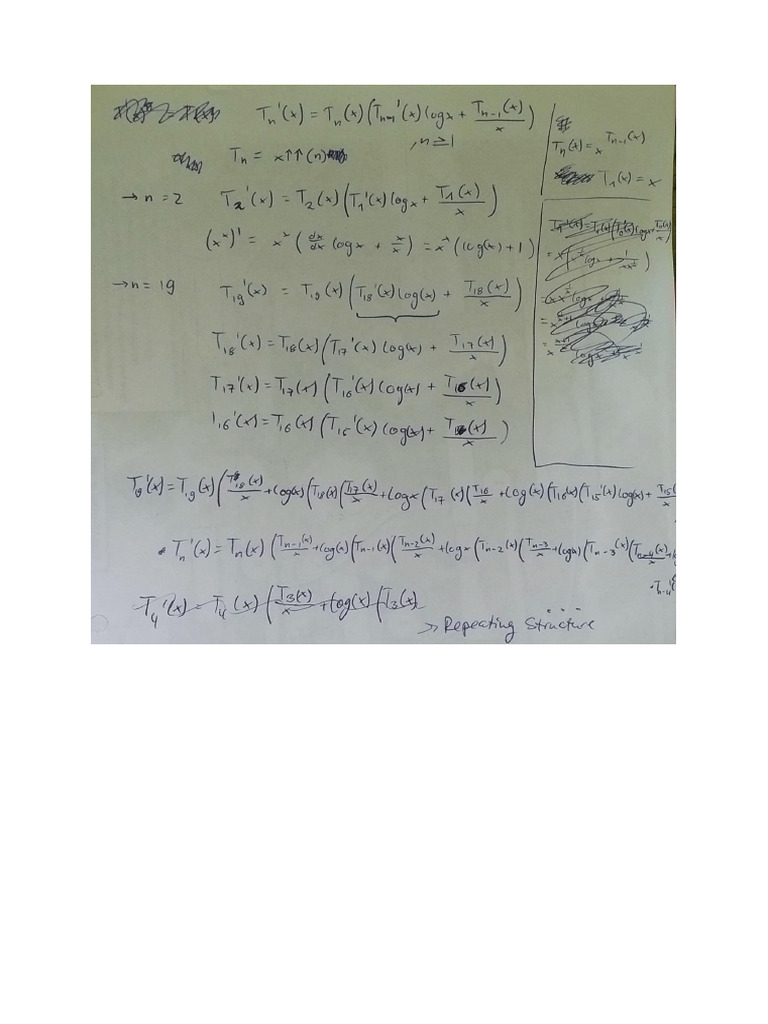 Tₙ'(x) = Tₙ(x) (Tₙ₋₁'(x) log x + Tₙ₋₁(x)/x)
, n ≥ 1
Tₙ = x↑↑(n)
Tₙ(x) = x^Tₙ₋₁(x)
T₁(x) = x
→ n = 2 T₂'(x) = T₂(x) (T₁'(x) log x + T₁(x)/x)
(xˣ)' = xˣ (dx/dx log x + x/x) = xˣ (log(x) + 1)
→ n = 19 T₁₉'(x) = T₁₉(x) (T₁₈'(x) log(x) + T₁₈(x)/x)
T₁₈'(x) = T₁₈(x) (T₁₇'(x) log(x) + T₁₇(x)/x)
T₁₇'(x) = T₁₇(x) (T₁₆'(x) log(x) + T₁₆(x)/x)
T₁₆'(x) = T₁₆(x) (T₁₅'(x) log(x) + T₁₅(x)/x)
T₁₉'(x) = T₁₉(x) (T₁₈(x)/x + log(x) (T₁₈(x) (T₁₇(x)/x + log x (T₁₇(x) (T₁₆/x + log(x) (T₁₆(x) (T₁₅'(x) log(x) + T₁₅(x)
• Tₙ'(x) = Tₙ(x) (Tₙ₋₁(x)/x + log(x) (Tₙ₋₁(x) (Tₙ₋₂(x)/x + log x (Tₙ₋₂(x) (Tₙ₋₃/x + log(x) (Tₙ₋₃(x) (Tₙ₋₄(x)/x +
• Tₙ₋₄'
T₄'(x) = T₄(x) (T₃(x)/x + log(x) (T₃(x)
...
→ Repeating Structure